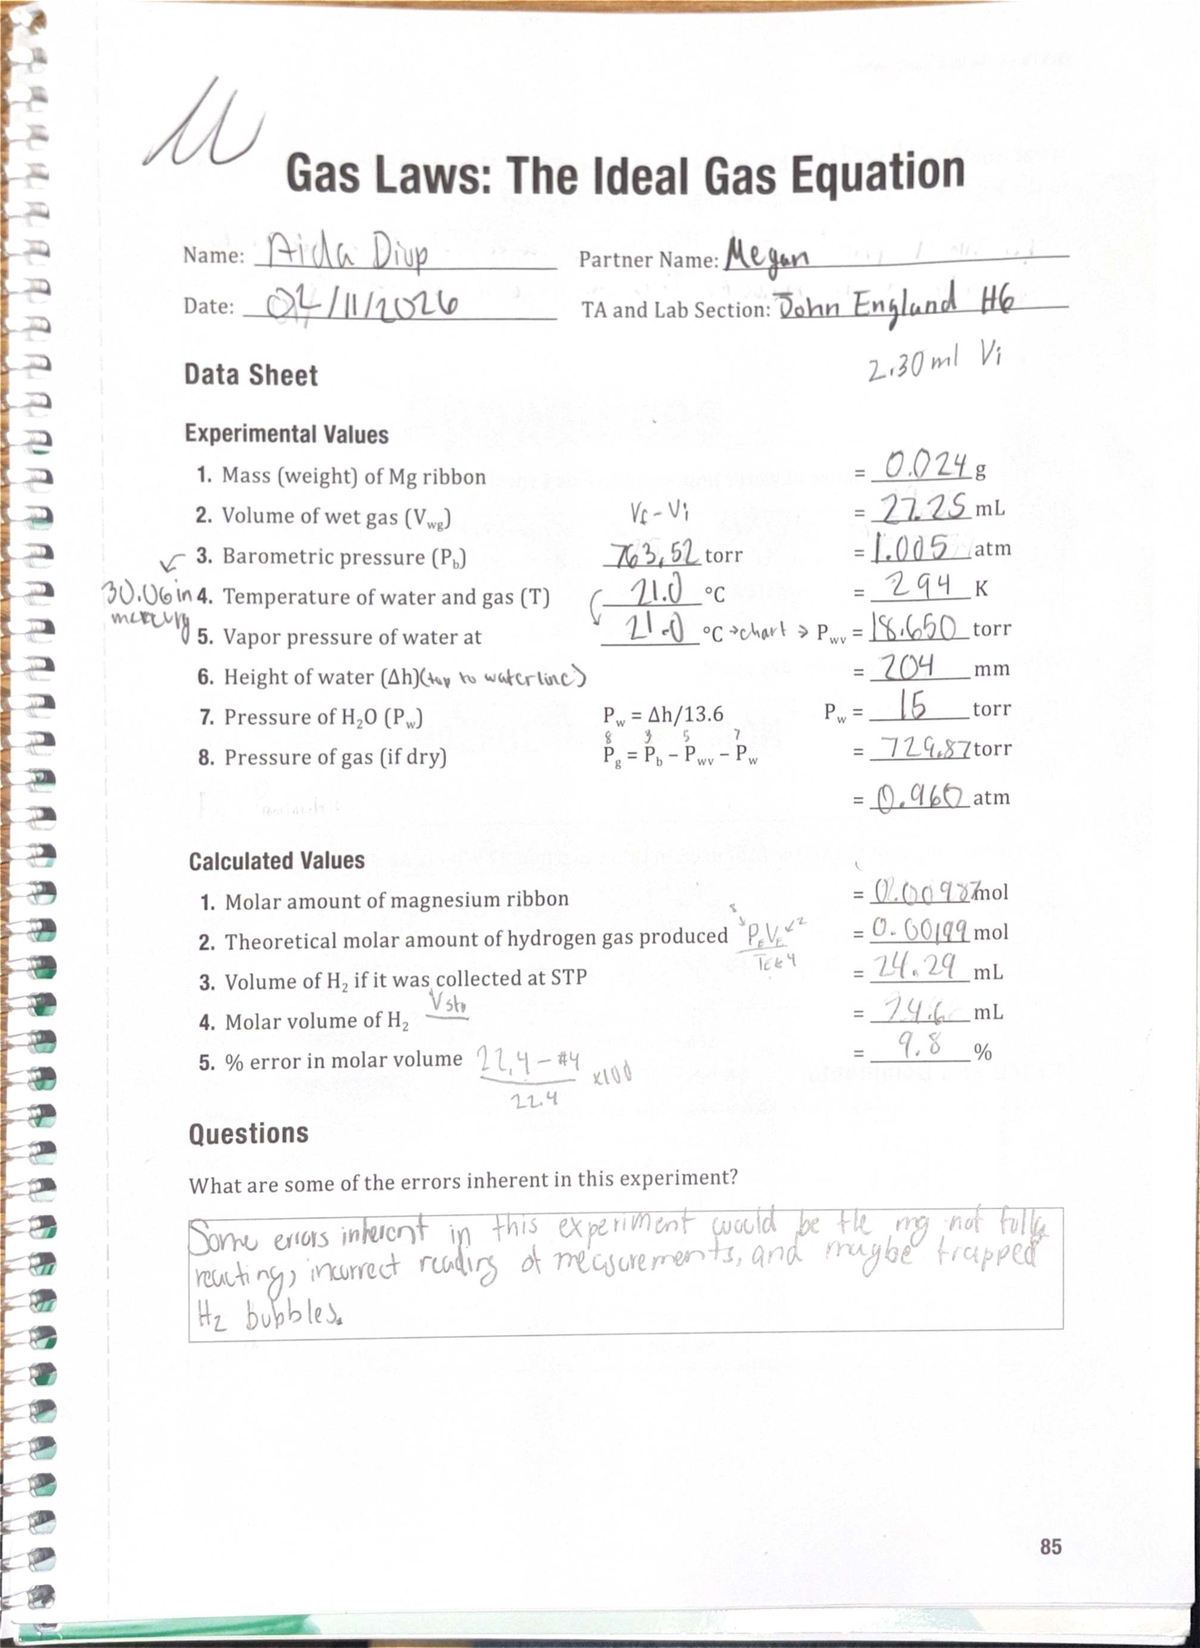 Gas Laws: The Ideal Gas Equation
Name: Aida Diop Partner Name: Megan
Date: 04/11/2026 TA and Lab Section: John England H6
2.30 ml Vi
Data Sheet
Experimental Values
1. Mass (weight) of Mg ribbon = 0.024 g
2. Volume of wet gas (Vwg) Vf - Vi = 27.25 mL
3. Barometric pressure (Pb) 763.52 torr = 1.005 atm
30.06 in mercury
4. Temperature of water and gas (T) 21.0 °C = 294 K
5. Vapor pressure of water at 21.0 °C → chart → Pwv = 18.650 torr
6. Height of water (Δh) (top to waterline) = 204 mm
7. Pressure of H₂O (Pw) Pw = Δh/13.6 Pw = 15 torr
8 3 5 7
8. Pressure of gas (if dry) Pg = Pb – Pwv – Pw = 729.87 torr
= 0.960 atm
Calculated Values
1. Molar amount of magnesium ribbon = 0.00987 mol
2. Theoretical molar amount of hydrogen gas produced = 0.00199 mol
3. Volume of H₂ if it was collected at STP = 24.29 mL
Vstp
4. Molar volume of H₂ = 24.6 mL
5. % error in molar volume 22.4 - #4 / 22.4 x100 = 9.8 %
Questions
What are some of the errors inherent in this experiment?
Some errors inherent in this experiment would be the mg not fully
reacting, incorrect reading of measurements, and maybe trapped
H₂ bubbles.
85